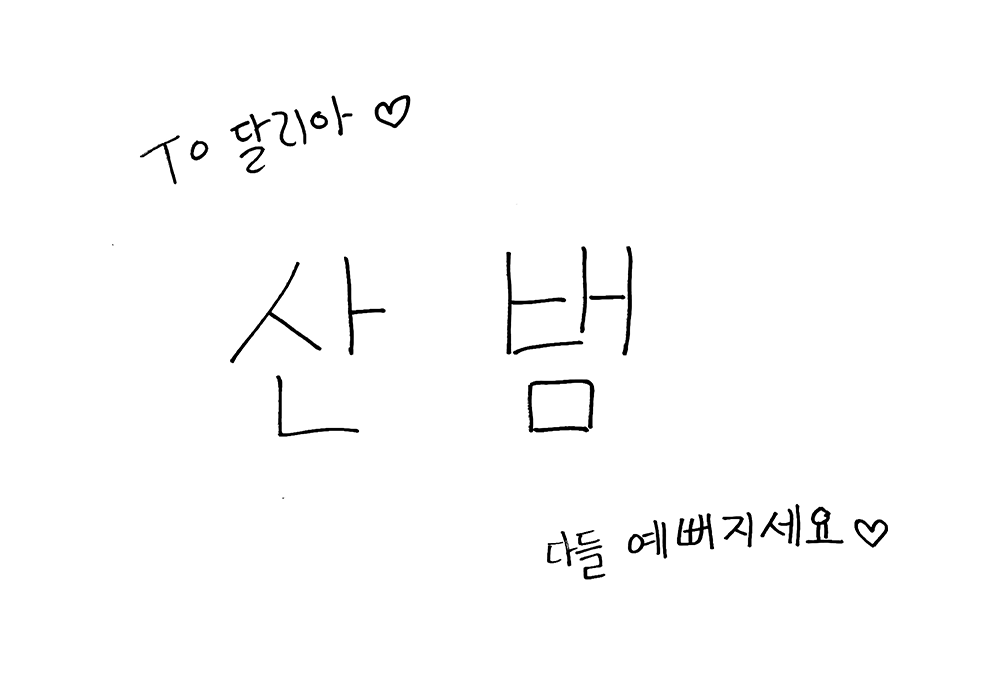 To 달리아 ♡
산 범
다들 예뻐지세요♡